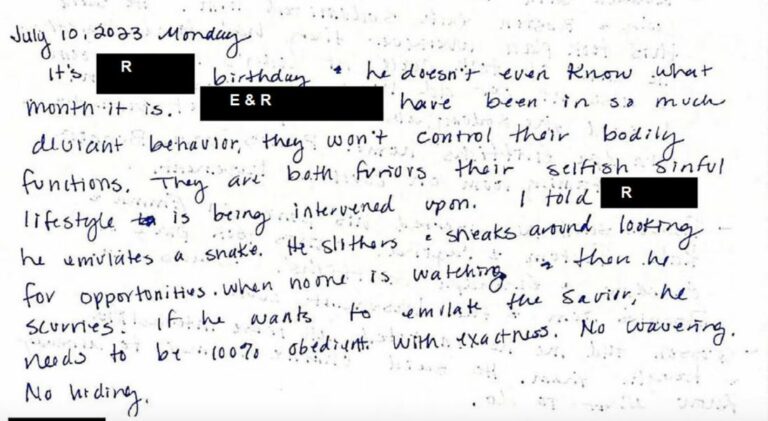 July 10, 2023 Monday
It's R birthday & he doesn't even know what
month it is. E & R have been in so much
deviant behavior, they won't control their bodily
functions. They are both furious their selfish sinful
lifestyle is being intervened upon. I told R
he emulates a snake. He slithers & sneaks around looking
for opportunities when no one is watching & then he
scurries. If he wants to emulate the Savior, he
needs to be 100% obedient with exactness. No wavering.
No hiding.